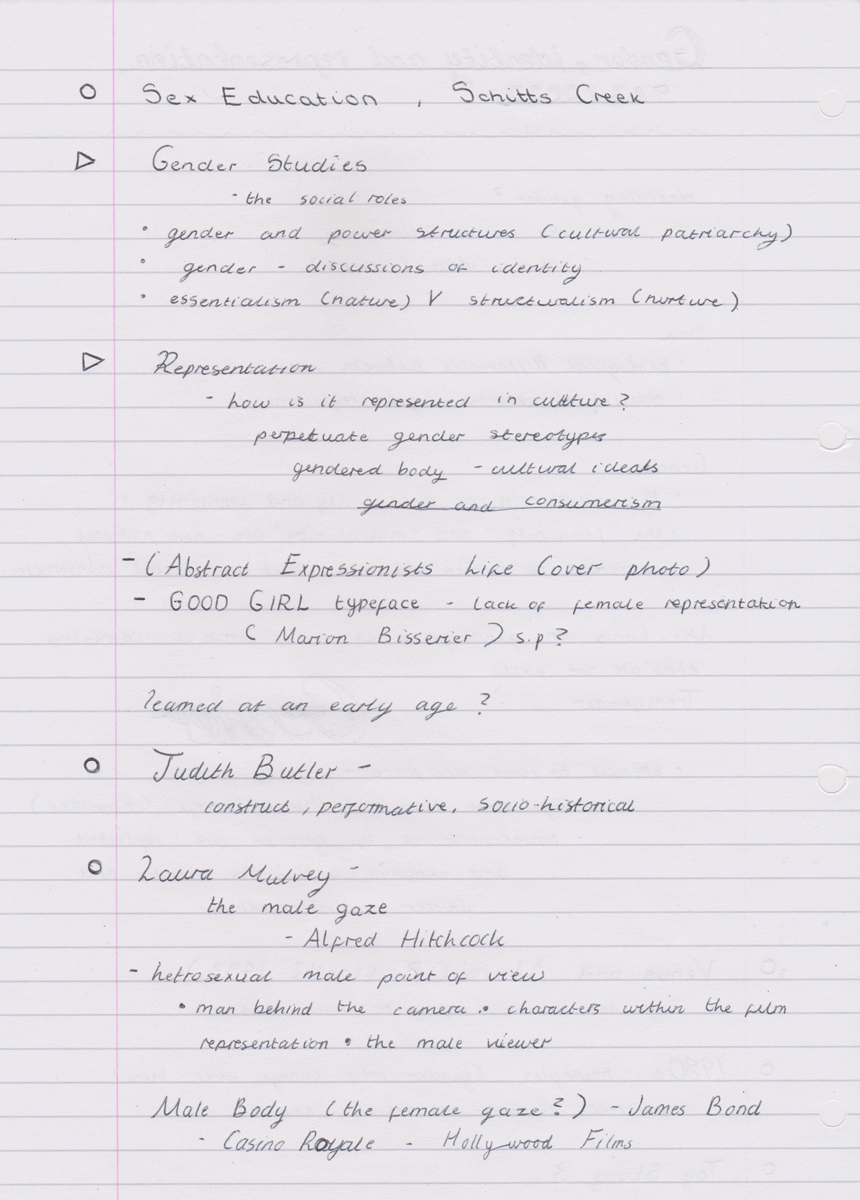 O Sex Education , Schitts Creek
▷ Gender Studies
- the social roles
• gender and power structures (cultural patriarchy)
• gender - discussions of identity
• essentialism (nature) V structuralism (nurture)
▷ Representation
- how is it represented in culture?
perpetuate gender stereotypes
gendered body - cultural ideals
gender and consumerism
- (Abstract Expressionists Life Cover photo)
- GOOD GIRL typeface - lack of female representation
( Marion Bisserier ) s.p?
learned at an early age ?
O Judith Butler -
construct, performative, socio-historical
O Laura Mulvey -
the male gaze
- Alfred Hitchcock
- hetrosexual male point of view
• man behind the camera • characters within the film
representation • the male viewer
Male Body (the female gaze?) - James Bond
- Casino Royale - Hollywood Films